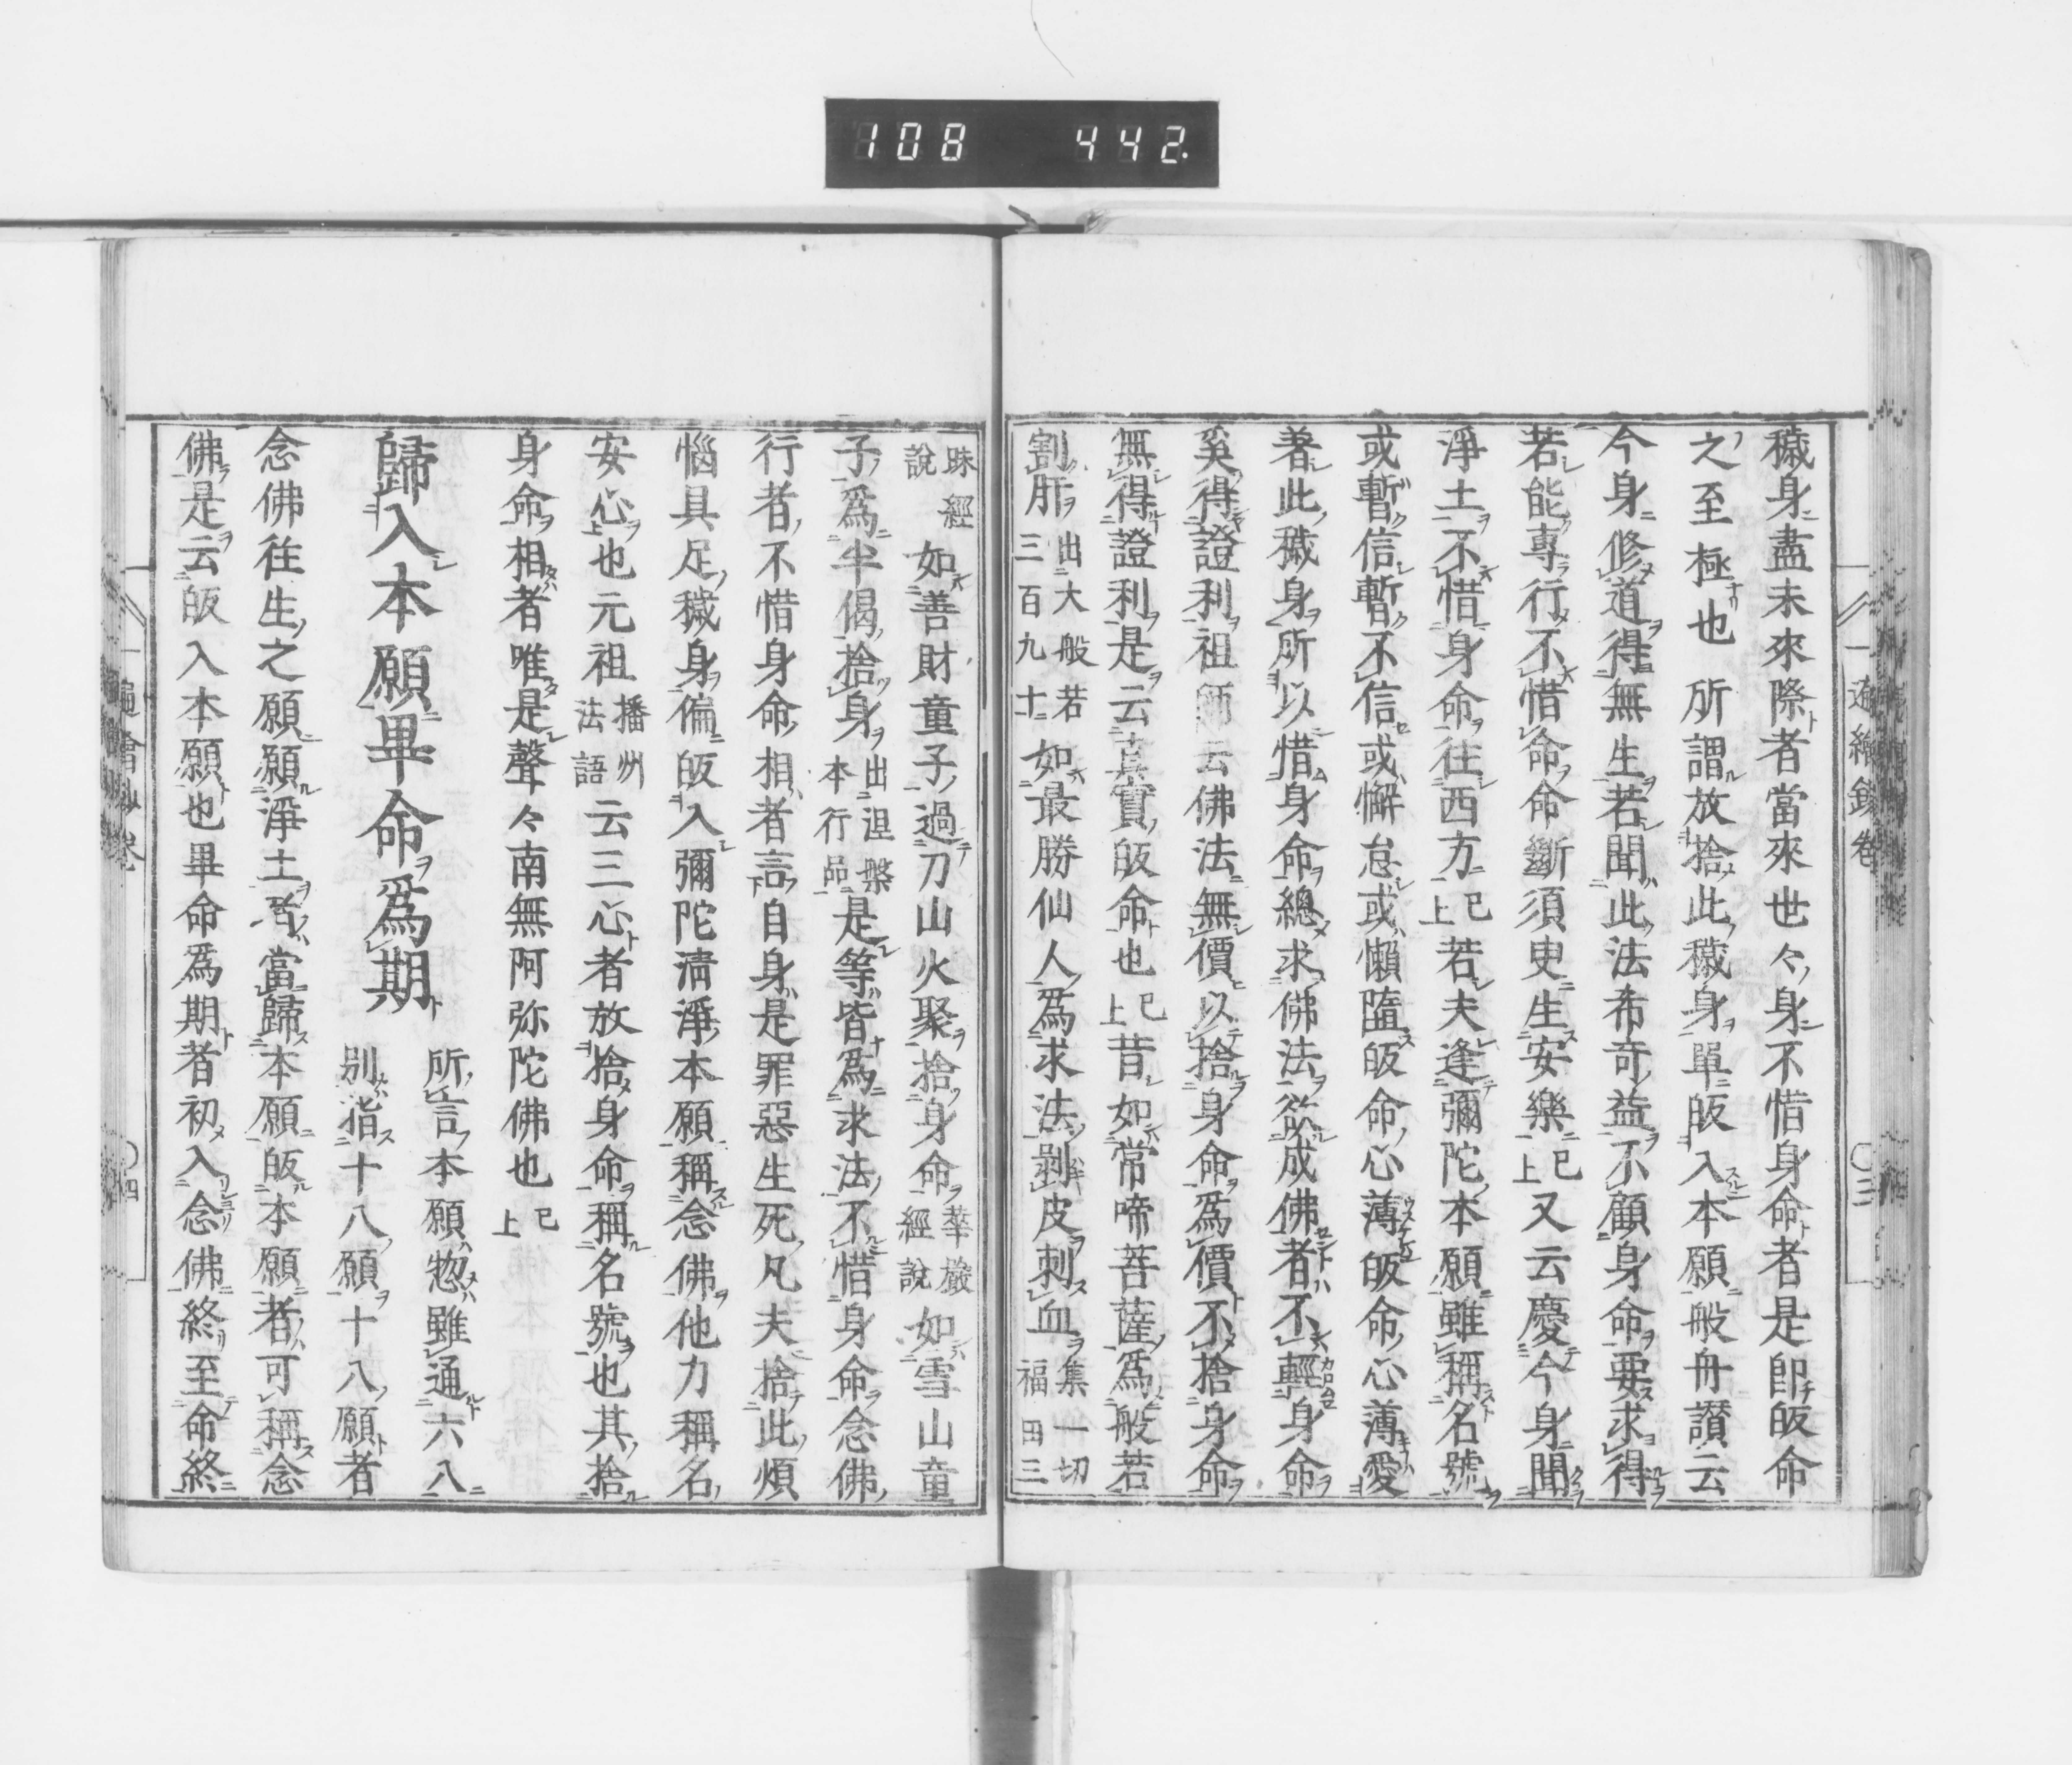 108 442.
穢身盡未來際者當來世々身不惜身命者是即皈命
之至極也 所謂放捨此穢身單皈入本願般舟讃云
今身修道得無生若聞此法希奇益不顧身命要求得
若能專行不惜命命斷須臾生安樂已上又云慶今身聞
淨土不惜身命往西方已上若夫逢彌陀本願雖稱名號
或暫信暫不信或懈怠或懶墮皈命心薄皈命心薄愛
著此穢身所以惜身命總求佛法欲成佛者不輕身命
奚得證利祖師云佛法無價以捨身命為價不捨身命
無得證利是云真實皈命也已上昔如常啼菩薩為般若
割肝出大般若三百九十如最勝仙人為求法剝皮刺血集一切福田三
昧經說如善財童子過刀山火聚捨身命華嚴經說如雪山童
子為半偈捨身出涅槃本行品是等皆為求法不惜身命念佛
行者不惜身命相者言自身是罪惡生死凡夫捨此煩
惱具足穢身偏皈入彌陀清淨本願稱念佛他力稱名
安心也元祖播州法語云三心者放捨身命稱名號也其捨
身命相者唯是聲々南無阿弥陀佛也已上
歸入本願畢命爲期
所言本願惣雖通六八
別指十八願十八願者
念佛往生之願願淨土者當歸本願皈本願者可稱念
佛是云皈入本願也畢命為期者初入念佛終至命終